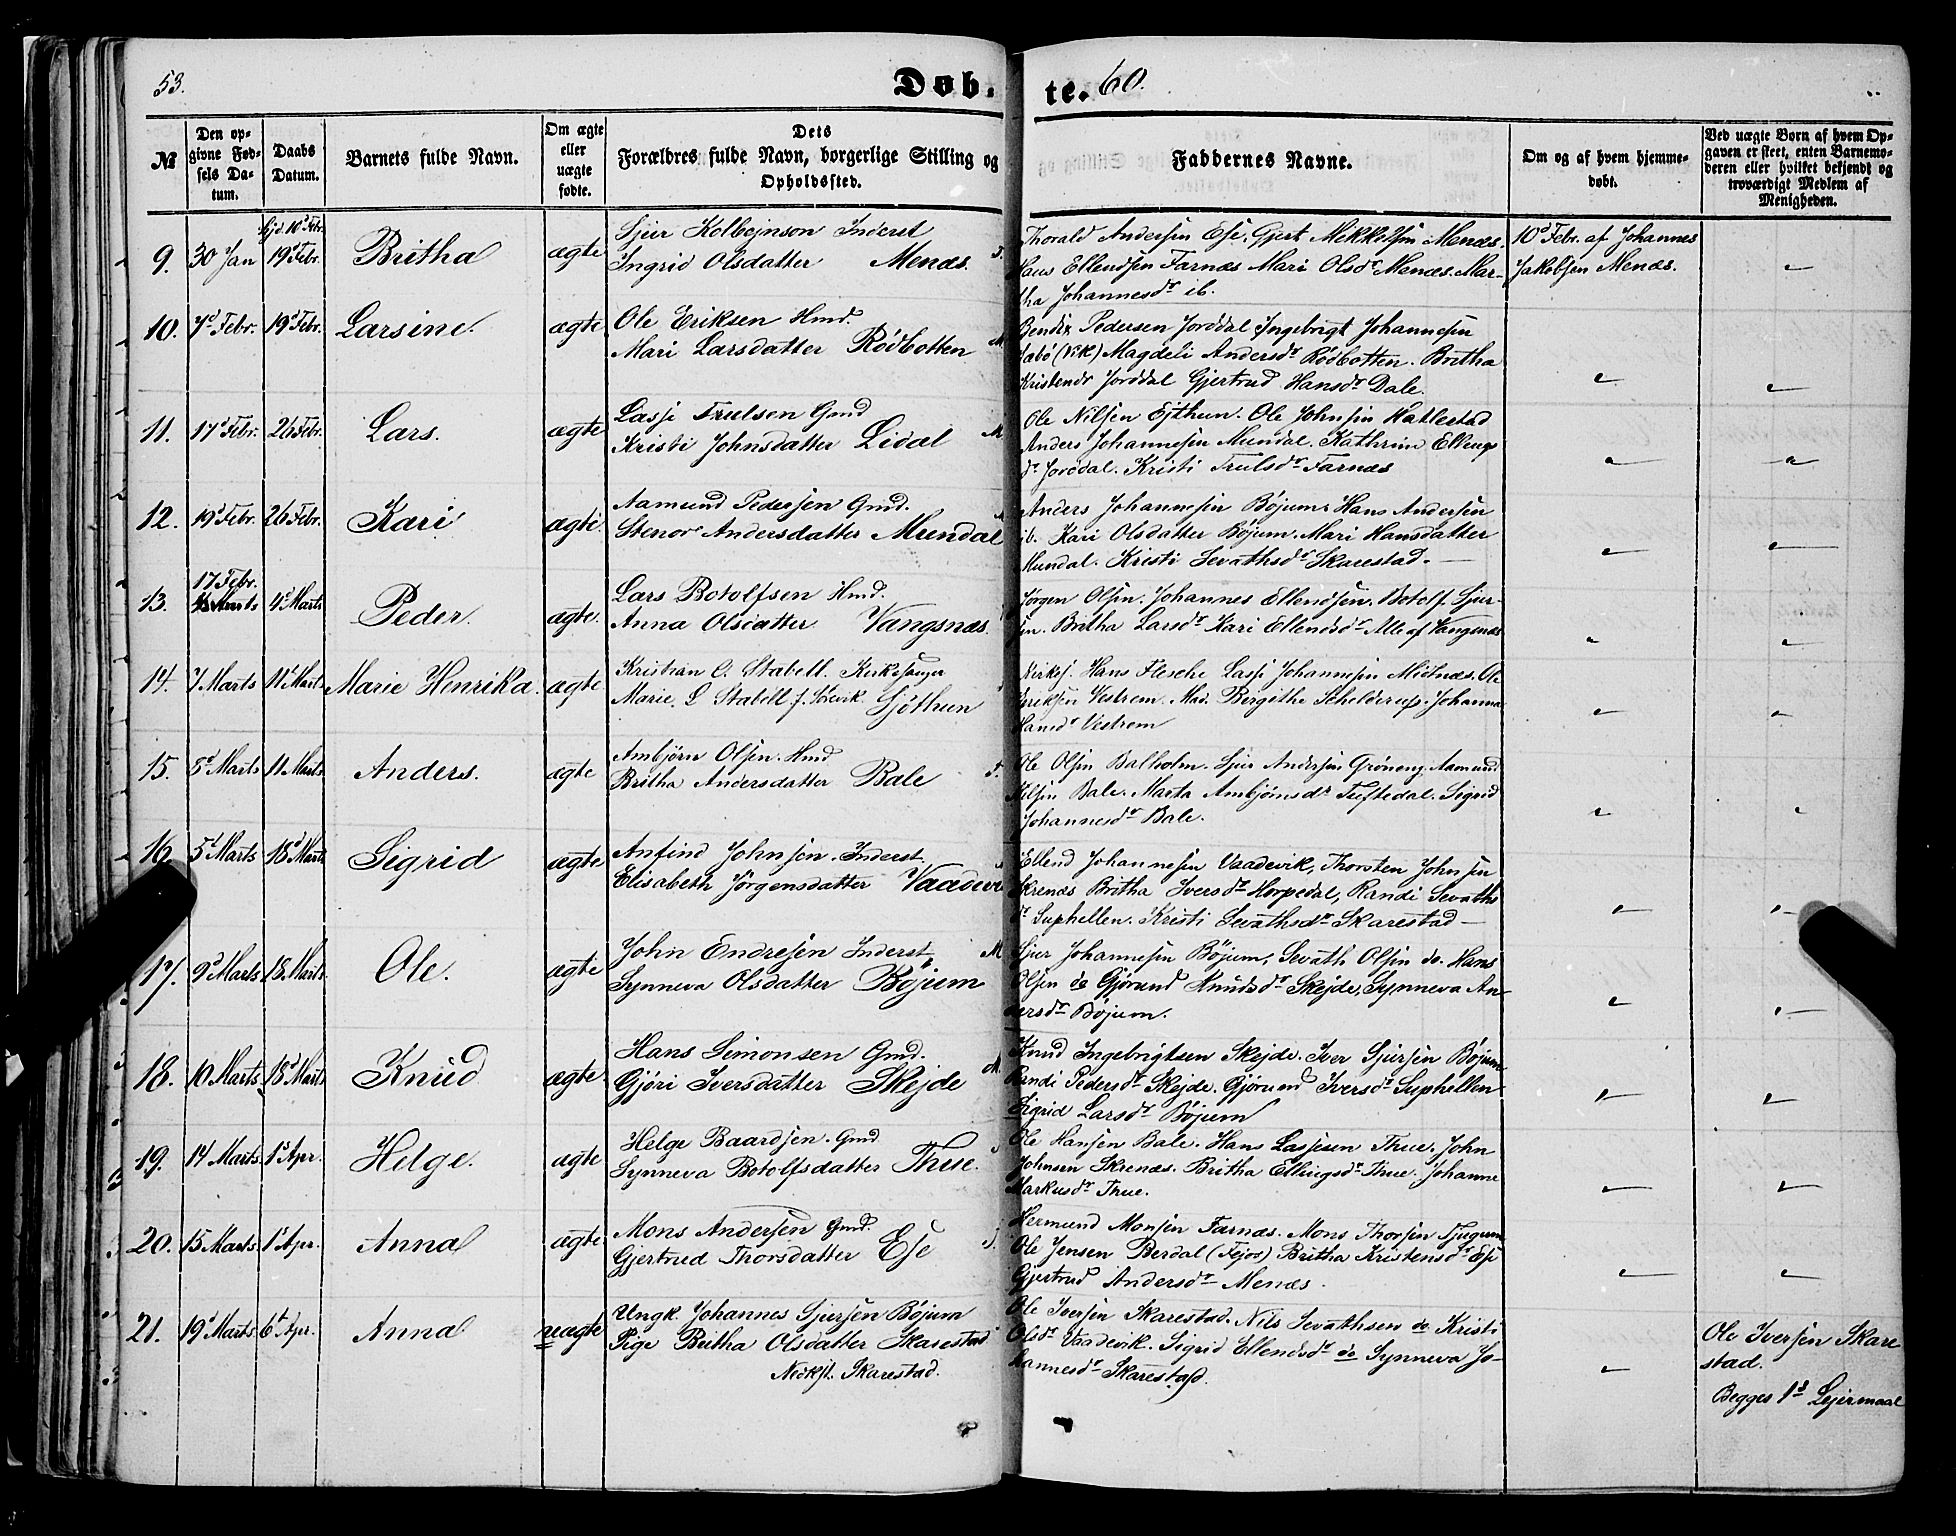 53. Døb. te. 60.
№
Den opgivne Fødsels Datum.
Daabs Datum.
Barnets fulde Navn.
Om ægte eller uægte fødte.
Dets Forældres fulde Navn, borgerlige Stilling og Opholdssted.
Faddernes Navne.
Om og af hvem hjemmedøbt.
Ved uægte Børn af hvem Opgaven er skeet, enten Barnemoderen eller hvilket bekjendt og troværdigt Medlem af Menigheden.
9. 30 Jan Hjd. 10d Febr. 19d Febr. Britha ægte
Sjur Kolbejnson Inderst
Ingrid Olsdatter Menæs.
Thorald Andersen Ese. Gjert Mikkelsen Menæs.
Hans Ellendsen Farnæs Mari Olsdr Menæs. Mar-
tha Johannesdr ib.
10d Febr. af Johannes
Jakobsen Menæs.
10. 7d Febr. 19d Febr. Larsine. ægte
Ole Eriksen Hmd.
Mari Larsdatter Rødbotten M
Bendix Pedersen Jorddal Ingebrigt Johannesen
Sabø (Vik) Magdeli Andersdr Rødbotten. Britha
Kristendr Jorddal Gjertrud Hansdr Dale.
11. 17d Febr. 26 Febr. Lars. ægte
Lasse Trulsen Gmd
Kristi Johnsdatter Lidal M
Ole Nilsen Ejthun. Ole Johnsen Hatlestad
Anders Johannesen Mundal. Kathrine Ellings
dr Jorddal. Kristi Trulsdr Farnæs
12. 19d Febr. 26 Febr. Kari ægte.
Aamund Pedersen Gmd.
Stenor Andersdatter Mundal
Anders Johannesen Bøjum. Hans Andersen
ib. Kari Olsdatter Bøjum. Mari Hansdatter
Mundal. Kristi Sevathsdr Skarestad.
13. 17 Febr. 4d Marts Peder. ægte.
Lars Botolfsen Hmd.
Anna Olsdatter Vangsnæs.
Jørgen Olsen. Johannes Ellendsen. Botolf Sjur-
sen. Britha Larsdr Kari Ellendsdr Alle af Vangsnæs
14. 7 Marts 11d Marts Marie Henrika. ægte
Kristian C. Stabell Kirkesanger
Marie L Stabell f. Sørvik Sjøthun
Kirkesj. Hans Flesche Lasse Johannesen Midnæs. Ole
Eriksen Vestrem. Mad. Bergithe Schelderup. Johanna
Hansdr Vestrem
15. 5d Marts 11 Marts Anders. ægte
Ambjørn Olsen. Hmd
Britha Andersdatter Bale
Ole Olsen Balholm. Sjur Andersen Grøneng. Aamund
Nilsen Bale. Marta Ambjørnsdr Tuftedal. Sigrid
Johannesdr Bale.
16. 5d Marts 18d Marts Sigrid ægte
Anfind Johnsen. Inderst
Elisabeth Jørgensdatter Vaadevi
Ellend Johannesen Vaadevik, Thorsten Johnsen
Skrenæs Britha Iversdr Horpedal, Randi Sevaths
dr Suphellen. Kristi Sevathsdr Skarestad
17. 9d Marts 18. Marts Ole. ægte
John Endresen Inderst M
Synneva Olsdatter Bøjum
Sjur Johannesen Bøjum, Sevath Olsen do. Hans
Olsen do Gjørund Knudsdr Skejde, Synneva An-
dersdr Bøjum.
18. 10 Marts 18d Marts Knud ægte
Hans Simonsen Gmd. M.
Gjøri Iversdatter Skejde
Knud Ingebrigtsen Skejde. Iver Sjursen Bøjum
Randi Pedersdr Skejde. Gjørund Iversdr Suphellen
Sigrid Larsdr Bøjum
19. 14 Marts. 1d Apr. Helge. ægte
Helge Baardsen. Gmd
Synneva Botolfsdatter Thue.
Ole Hansen Bale. Hans Lassesen Thue. John
Johnsen Skrenæs. Britha Ellingsdr Thue. Johanne
Markusdr Thue.
20. 15 Marts. 1d Apr. Anna ægte
Mons Andersen Gmd.
Gjertrud Thorsdatter Ese
Hermund Monsen Farnæs. Mons Thorsen Tjugum
Ole Jensen Berdal (Fejos) Britha Kristensdr Ese
Gjertrud Andersdr Menæs.
21. 19d Marts. 6t Apr. Anna uægte
Ungk. Johannes Sjursen Bøjum
Pige Britha Olsdatter Skarestad
Nedkst. Skarestad.
Ole Iversen Skarestad. Nils Sevathsen do Kristi
Olsdr Vaadevik. Sigrid Ellendsdr do Synneva Jo-
hannesdr Skarestad.
Ole Iversen Skare
stad.
Begges 1s Lejermaal